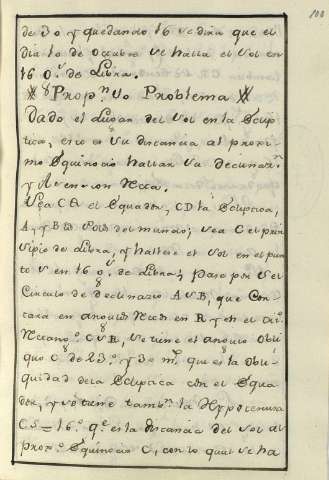 100
de 30 y quedando 16 se dira que el
dia 10 de Octubre se halla el Sol en
16 g.s de Libra.
Prop.n Vo Problema
Dado el Lugar del Sol en la Eclip
tica, esto es su distancia al proxi
mo Equinocio hallar su declinaz.n
y Asension Recta.
Sea CQ el Equador, CD la Ecliptica,
A, y B los Polos del mundo; sea C el prin
sipio de Libra, y hallese el Sol en el pun
to S en 16 g.s de Libra; pase por S el
Circulo de declinazio ASB, que Cor
tara en angulos Rectos en R y en el tri.o
Rectang.o CSR, se tiene el angulo Obli
quo C de 23 g.s y 30 m.s que es la Obli
quidad de la Ecliptica con el Equa
dor, y se tiene tamb.n la Hypotenusa
CS = 16 g.s q.e es la distancia del Sol al
prox.o Equinocio C, con lo qual se ha